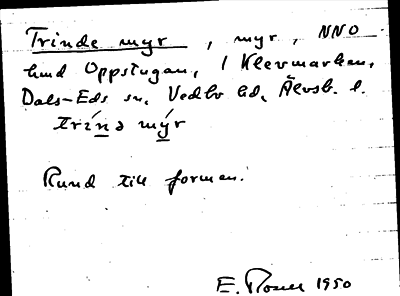 Trinde myr, myr, NNO
hmd Oppstugan, i Klevmarken,
Dals-Eds sn, Vedbo hd, Älvsb. l.
trínə mý̱r
Rund till formen.
E. Rosell 1950